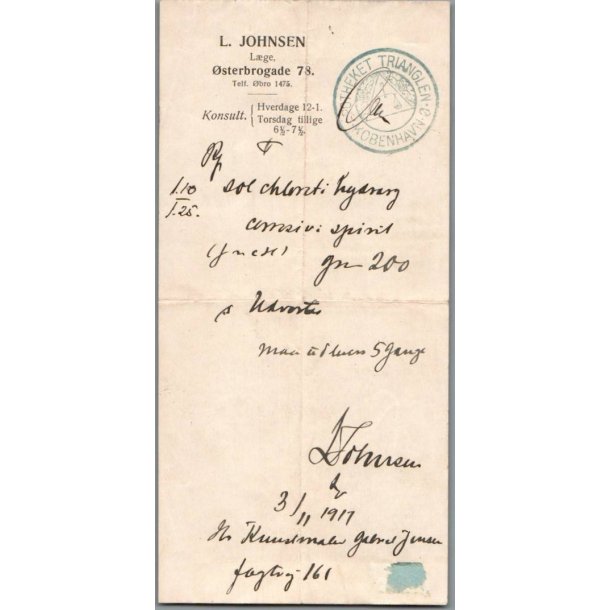 L. JOHNSEN
Læge.
Østerbrogade 78.
Telf. Øbro 1475.
Konsult. { Hverdage 12-1.
Torsdag tillige
6½-7½.
APOTHEKET TRIANGLEN · KØBENHAVN
Rp
1.10
1.25.
sol chloreti hydrarg
corrosivi spirit
gm 200
s Udvortes
Maa 5 Gange
L Johnsen
3/11 1917
Hr Kunstmaler Gabriel Jensen
161